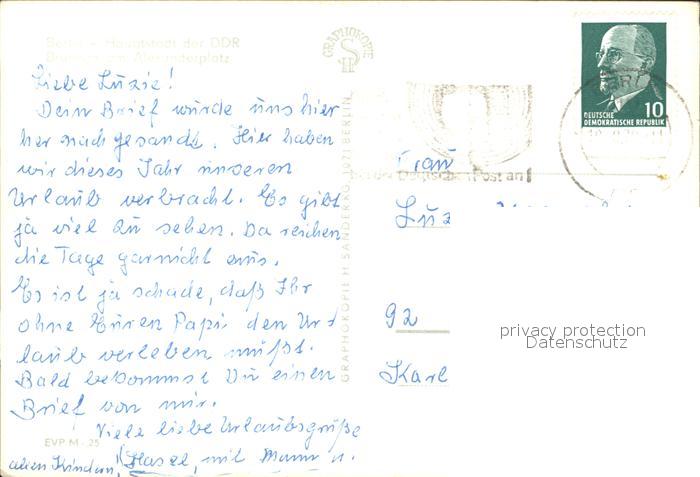 Berlin - Hauptstadt der DDR
Brunnen am Alexanderplatz
Liebe Luzie!
Dein Brief wurde uns hier
her nachgesandt. Hier haben
wir dieses Jahr unseren
Urlaub verbracht. Es gibt
ja viel zu sehen. Da reichen
die Tage garnicht aus.
Es ist ja schade, daß Ihr
ohne Euren Papi den Ur-
laub verleben mußt.
Bald bekommst Du einen
Brief von mir.
Viele liebe Urlaubsgrüße
EVP M -.25
Hasel, mit Mann u.
allen Kindern
GRAPHOKOPIE
GRAPHOKOPIE H. SANDER KG, 1071 BERLIN
10
DEUTSCHE
DEMOKRATISCHE REPUBLIK
der Deutschen Post an
Frau
Luz
92
Karl
privacy protection
Datenschutz